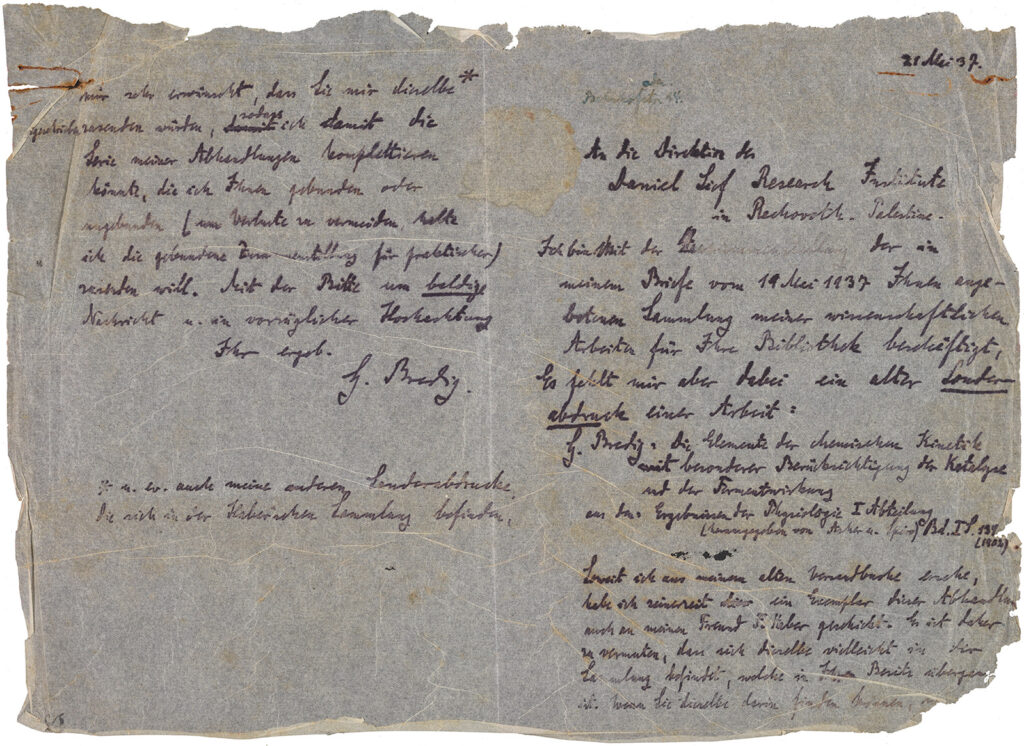 21 Mai 37.
An die Direktion des
Daniel Sief Research Institute
in Rechovoth. Palestine.
Ich bin mit der der in
meinem Briefe vom 19 Mai 1937 Ihnen ange-
botenen Sammlung meiner wissenschaftlichen
Arbeiten für Ihre Bibliothek beschäftigt,
Es fehlt mir aber dabei ein alter Sonder-
abdruck einer Arbeit:
G. Bredig: Die Elemente der chemischen Kinetik
mit besonderer Berücksichtigung der Katalyse
und der Fermentwirkung
aus den Ergebnissen der Physiologie I Abteilung
(herausgegeben von Asher u. Spiro) Bd. I S. 134
(1902)
Soweit ich aus meinem alten Versandbuche ersehe,
habe ich seinerzeit ein Exemplar dieser Abhandlun
auch an meinen Freund F. Haber geschickt. Es ist daher
zu vermuten, dass sich dieselbe vielleicht in der
Sammlung befindet, welche in Ihren Besitz übergegan
ist. Wenn Sie dieselbe darin finden können,
mir sehr erwünscht, dass Sie mir dieselbe *
zusenden würden, sodass ich damit die
Serie meiner Abhandlungen komplettieren
könnte, die ich Ihnen gebunden oder
ungebunden (um Verluste zu vermeiden, halte
ich die gebundene Form für praktischer)
zusenden will. Mit der Bitte um baldige
Nachricht u. in vorzüglicher Hochachtung
Ihr ergeb.
G. Bredig.
* u. ev. auch meine anderen Sonderabdrucke,
die sich in der Haberschen Sammlung befinden,